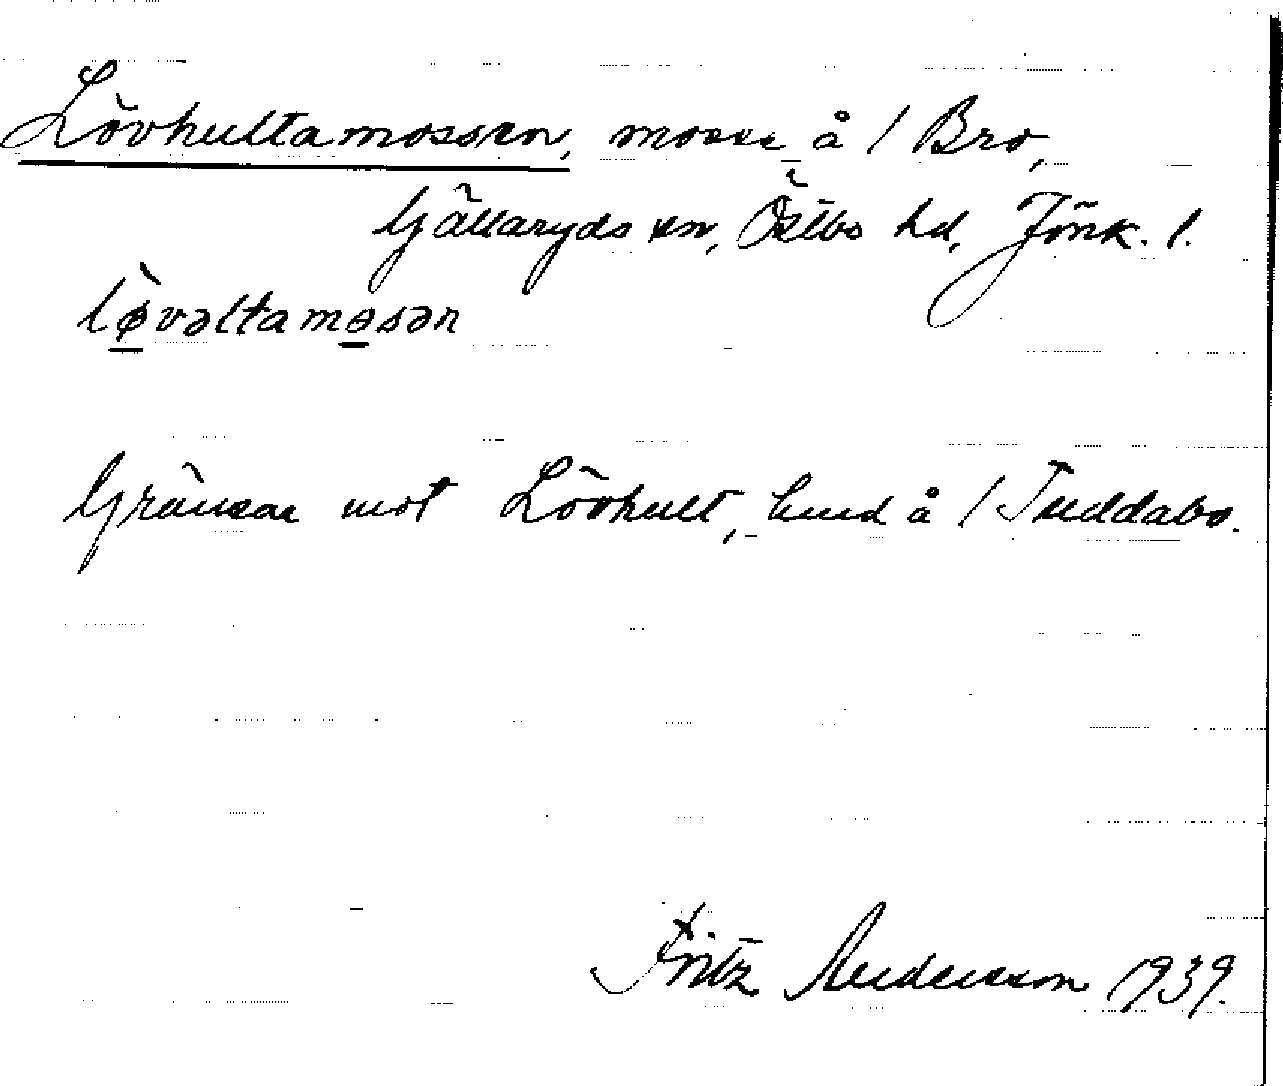 Lövhultamossen, mosse å / Bro,
Gällaryds sn, Östbo hd, Jönk. l.
lø̀vəltamɵsən
Gränsar mot Lövhult, lund å / Tuddabo.
Fritz Andersson 1939.